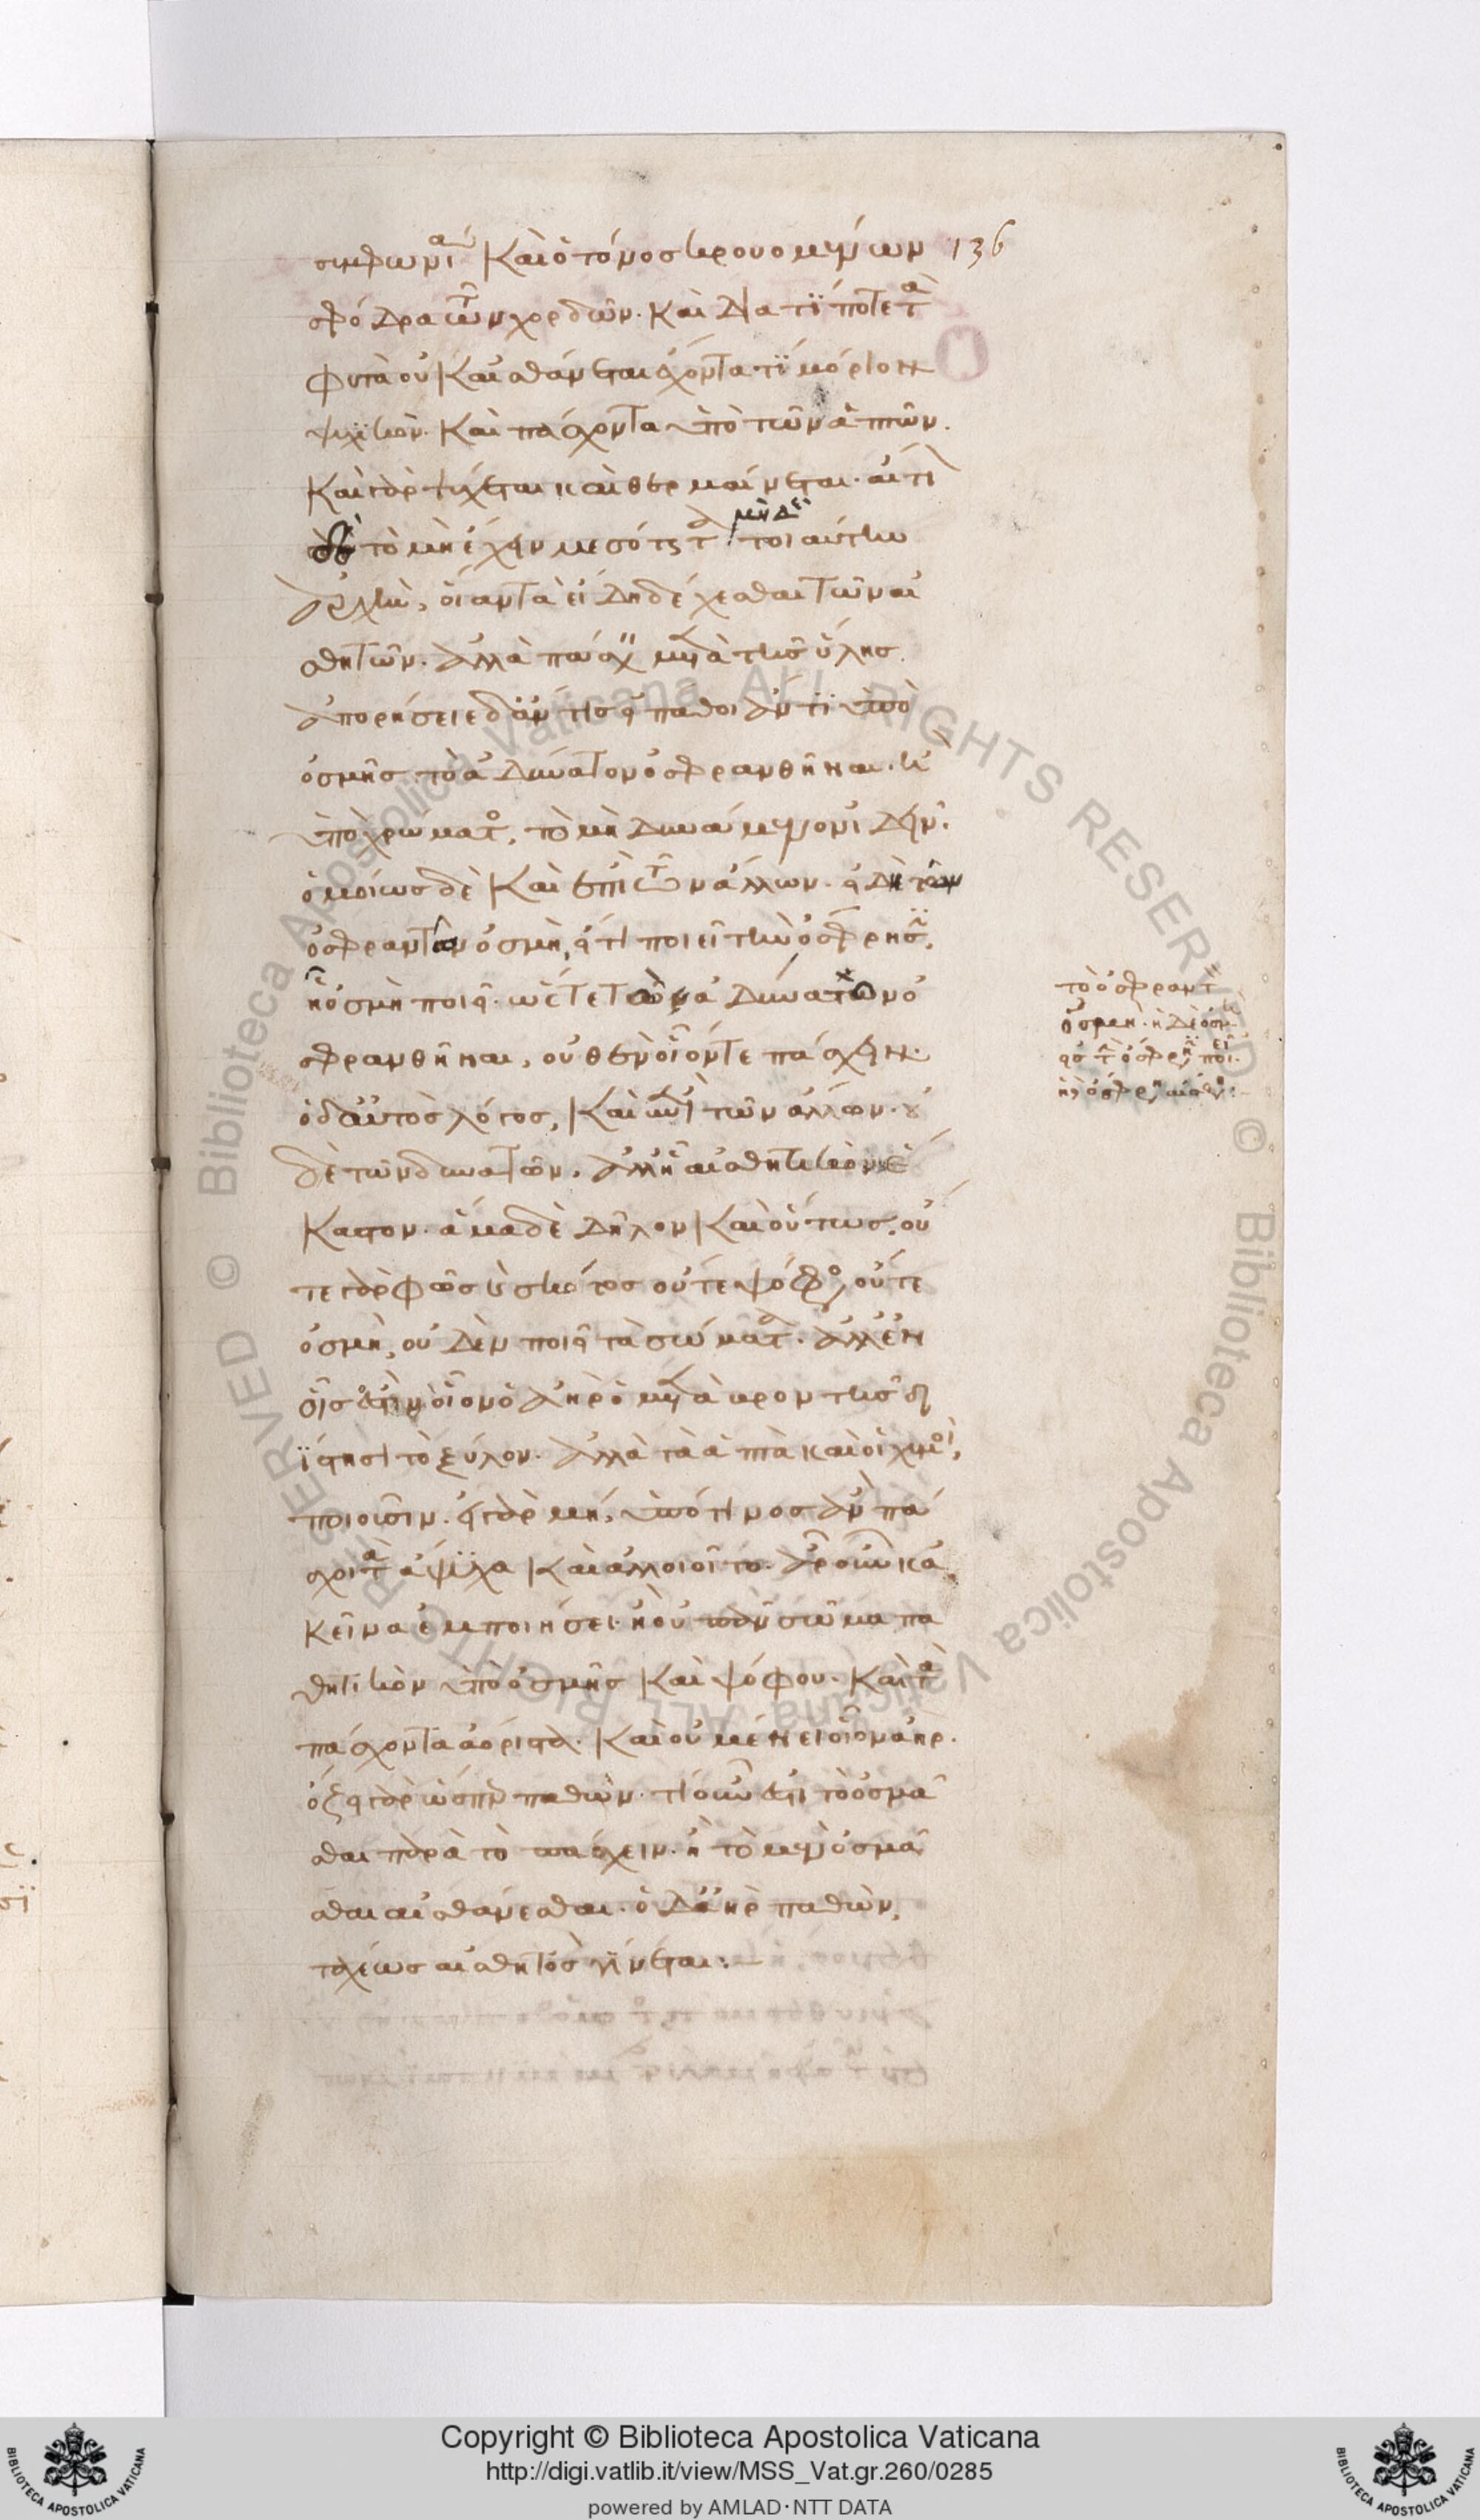 συμφωνία καὶ ὁ τόνος κρουομένων 136
σφόδρα τῶν χορδῶν. καὶ διατί ποτε τὰ
φυτὰ οὐκ αἰσθάνεται ἔχοντά τι μόριον
ψυχικὸν. καὶ πάσχοντα ὑπὸ τῶν ἁπτῶν.
καὶ γὰρ ψύχεται καὶ θερμαίνεται. αἴτιον
τὸ μὴ ἔχειν μεσότητα μηδὲ τοιαύτην
ἀρχὴν, οἵαν τὰ εἴδη δέχεσθαι τῶν αἰ
σθητῶν. ἀλλὰ πάσχειν μετὰ τῆς ὕλης.
ἀπορήσειε δ' ἄν τις εἰ πάθοι ἄν τι ὑπὸ
ὀσμῆς τὸ ἀδύνατον ὀσφρανθῆναι. ἢ
ὑπὸ χρώματος, τὸ μὴ δυνάμενον ἰδεῖν.
ὁμοίως δὲ καὶ ἐπὶ τῶν ἄλλων. εἰ δὲ τὸ
ὀσφραντὸν ὀσμὴ, εἴ τι ποιεῖ τὴν ὄσφρησιν,
ἡ ὀσμὴ ποιεῖ. ὥστε τῶν ἀδυνάτων ὀ
σφρανθῆναι, οὐθὲν οἷόν τε πάσχειν.
ὁ δ' αὐτὸς λόγος, καὶ ἐπὶ τῶν ἄλλων. οὐ
δὲ τῶν δυνατῶν, ἀλλ' ἢ αἰσθητικὸν ἕ
καστον. ἅμα δὲ δῆλον καὶ οὕτως. οὔ
τε γὰρ φῶς καὶ σκότος οὔτε ψόφος, οὔτε
ὀσμὴ, οὐδὲν ποιεῖ τὰ σώματα. ἀλλ' ἐν
οἷς ἐστὶν οἷον ὁ ἀὴρ ὁ μετὰ βροντῆς δι
ίστησι τὸ ξύλον. ἀλλὰ τὰ ἁπτὰ καὶ οἱ χυμοὶ,
ποιοῦσιν. εἰ γὰρ μὴ, ὑπὸ τίνος ἂν πά
σχοι τὰ ἄψυχα καὶ ἀλλοιοῖτο. ἆρ' οὖν κἀ
κεῖνα ἐμποιήσει. ἢ οὐ πᾶν σῶμα πα
θητικὸν ὑπὸ ὀσμῆς καὶ ψόφου. καὶ τὰ
πάσχοντα ἀόριστα. καὶ οὐ μένει οἷον ἀήρ.
ὄζει γὰρ ὥσπερ παθών. τί οὖν ἐστι τὸ ὀσμᾶ
σθαι παρὰ τὸ πάσχειν. ἢ τὸ μὲν ὀσμᾶ
σθαι αἰσθάνεσθαι. ὁ δ' ἀὴρ παθὼν,
ταχέως αἰσθητὸς γίνεται:
τὸ ὀσφραντὸν
ὀσμή. ἡ δὲ ὀσμὴ